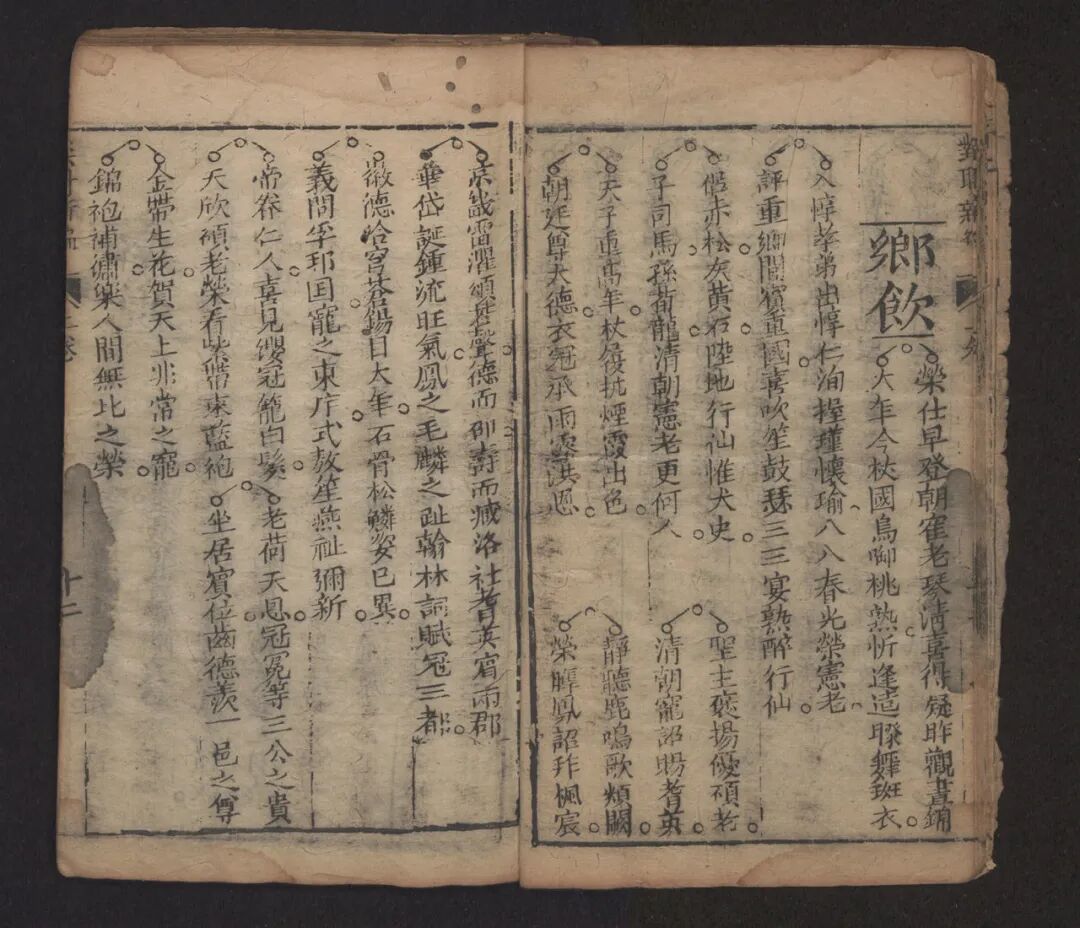 鄉飲
榮仕早登朝寉老琴清喜得疑昨觀晝錦
大年今杖國鳥啣桃熟忻逢造勝舞斑衣
入惇孝弟出惇仁洵握瑾懷瑜八八春光榮憲老
評重鄉閭賓重國喜吹笙鼓瑟三三宴熟醉行仙
偓赤松友黃石陸地行仙惟犬史
子司馬孫荀龍清朝憲老更何人
天子重高年杖屨抗煙霞出色
朝廷尊大德衣冠承雨露洪恩
聖主褒揚優碩老
清朝寵詔賜耆英
靜聽鹿鳴歌頖闕
榮膺鳳詔拜楓宸
京畿雷灌頌甚聲德而卲壽而臧洛社耆英甯兩郡
華岱誕鍾流旺氣鳳之毛麟之趾翰林詞賦冠三都
徽德合穹蒼錫日大年石骨松鱗姿已異
義問孚耶囯寵之東序式敖笙燕祉彌新
帝眷仁人喜見纓冠籠白髮
天欣碩老榮看紫帶束藍袍
老荷天恩冠冕等三公之貴
坐居賓位齒德羨一邑之尊
金帶生花賀天上非常之寵
錦袍補繡樂人間無比之榮
十二